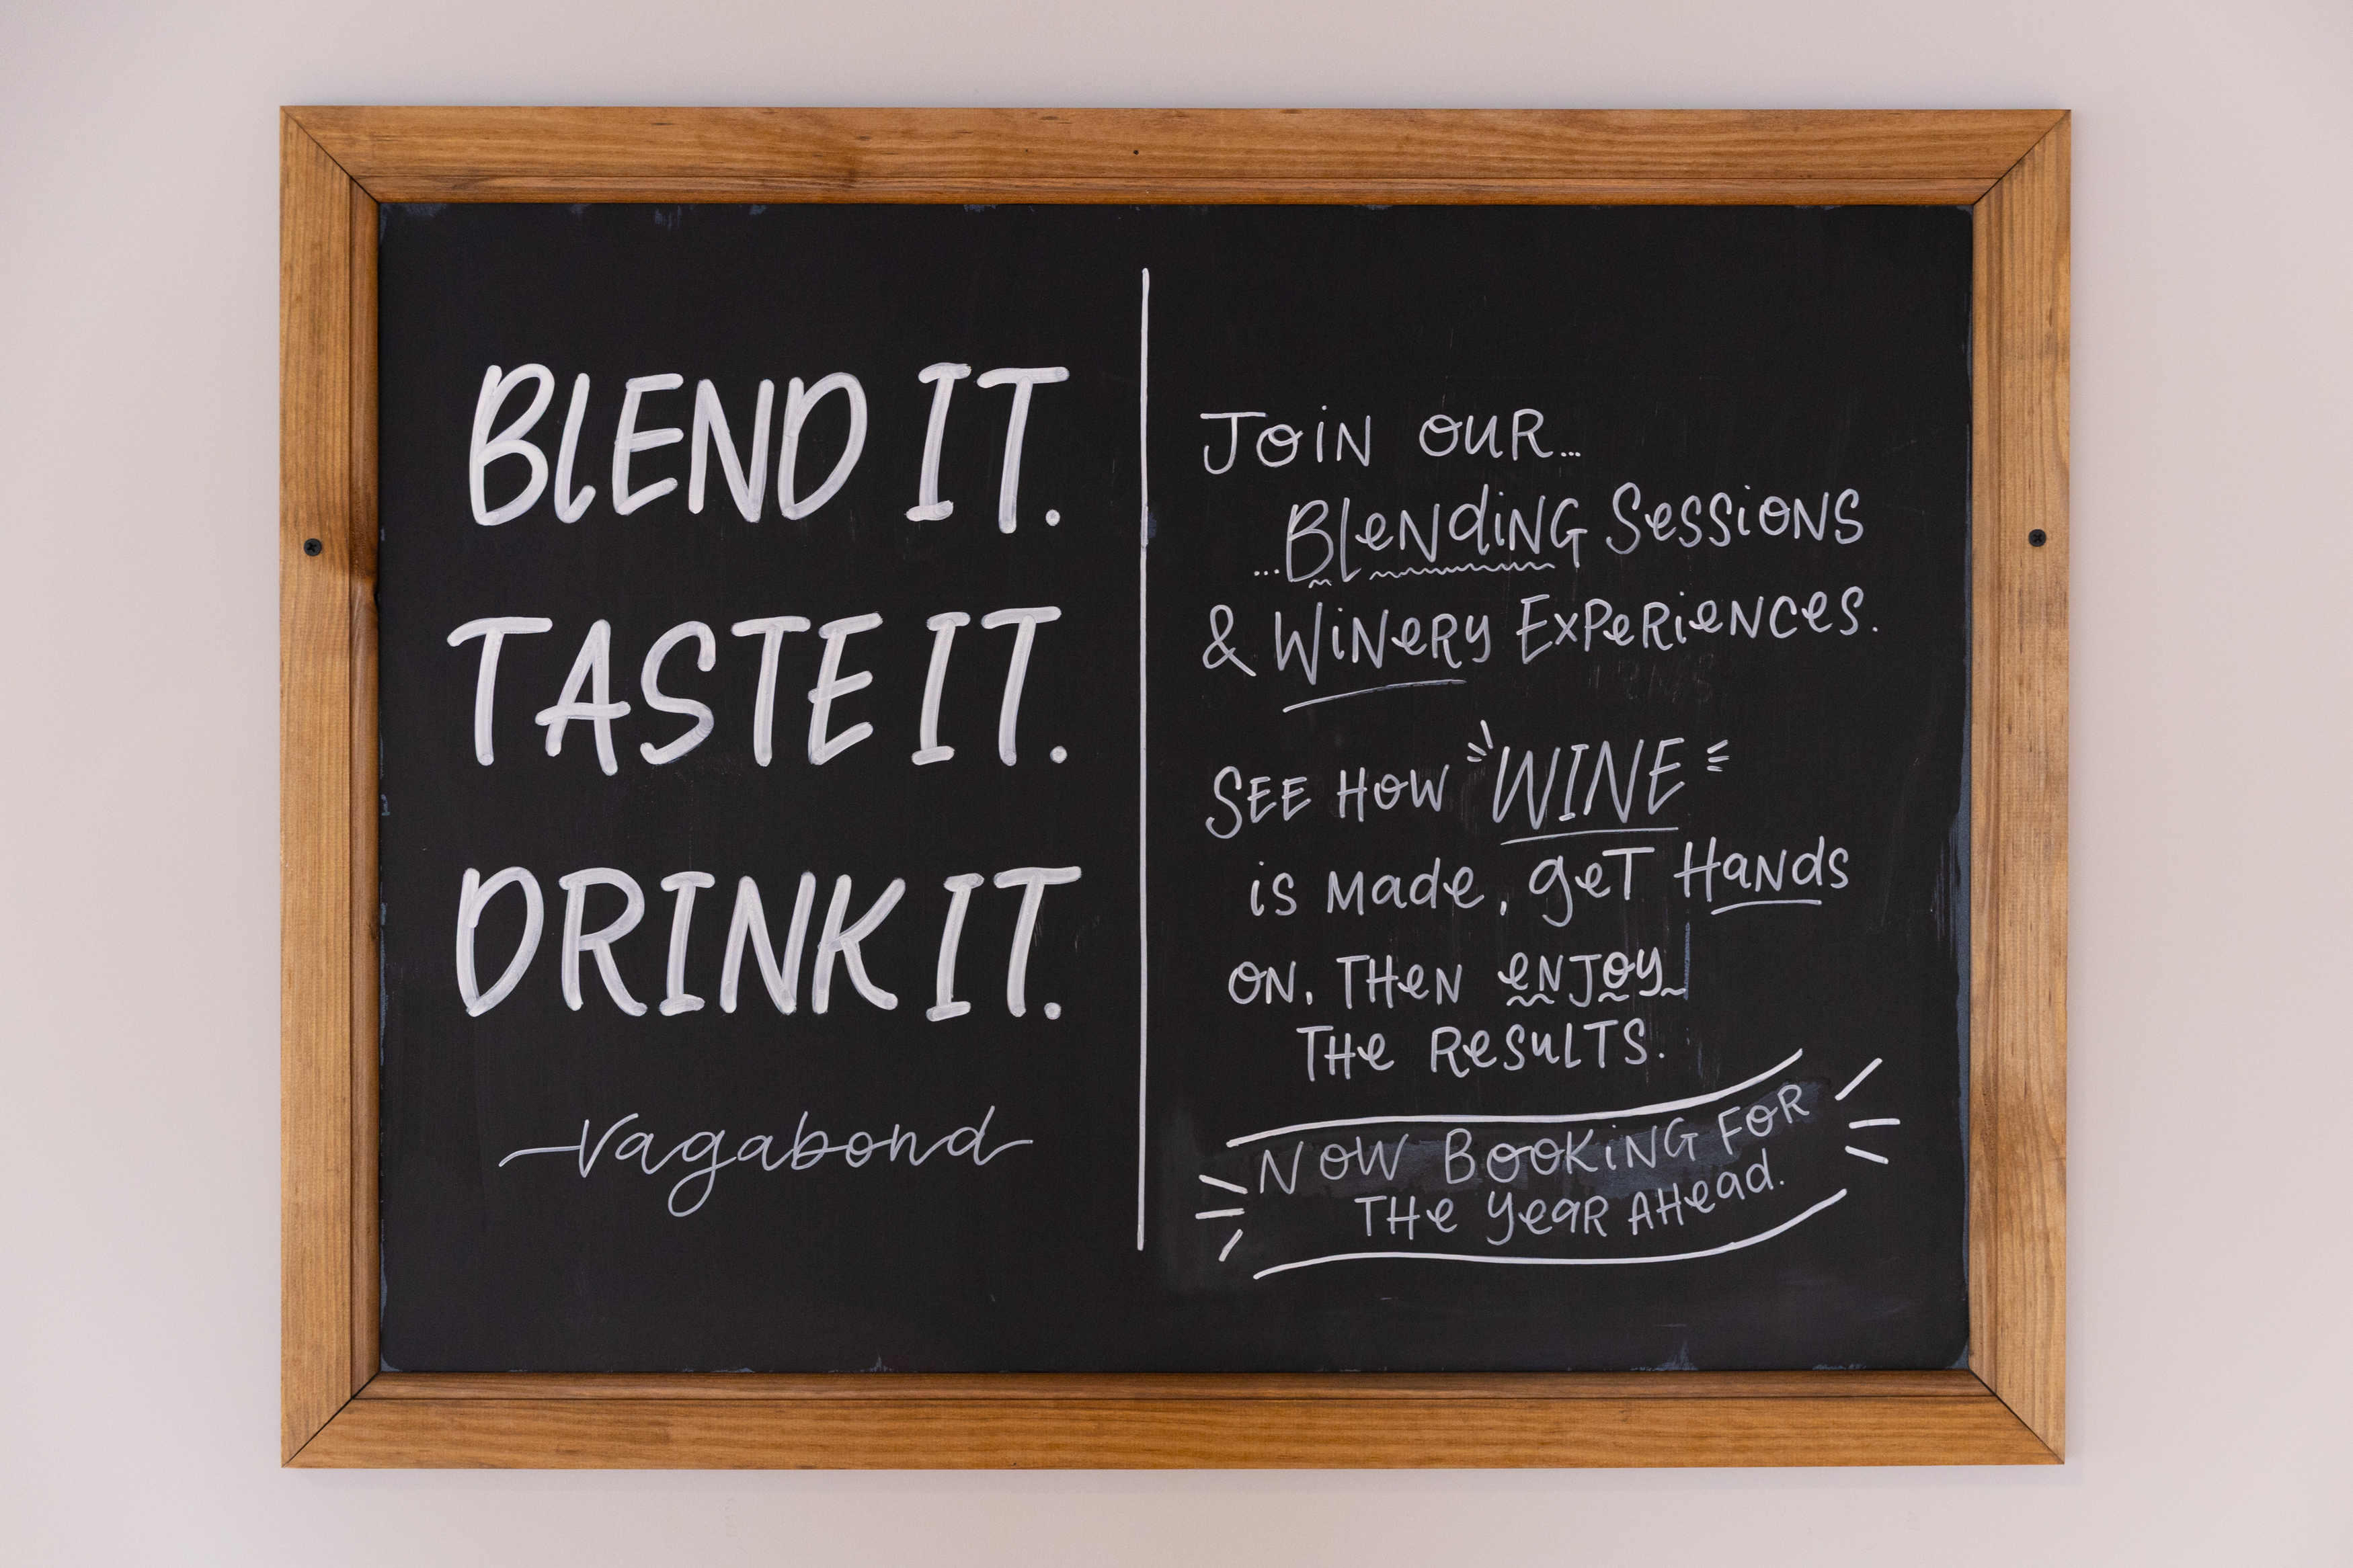 BLEND IT.
TASTE IT.
DRINK IT.
Vagabond
JOIN OUR...
...BLENDING SESSIONS
& WINERY EXPERIENCES.
SEE HOW WINE
is made, get Hands
ON. THEN ENJOY
THE RESULTS.
NOW BOOKING FOR
THE YEAR AHEAD.